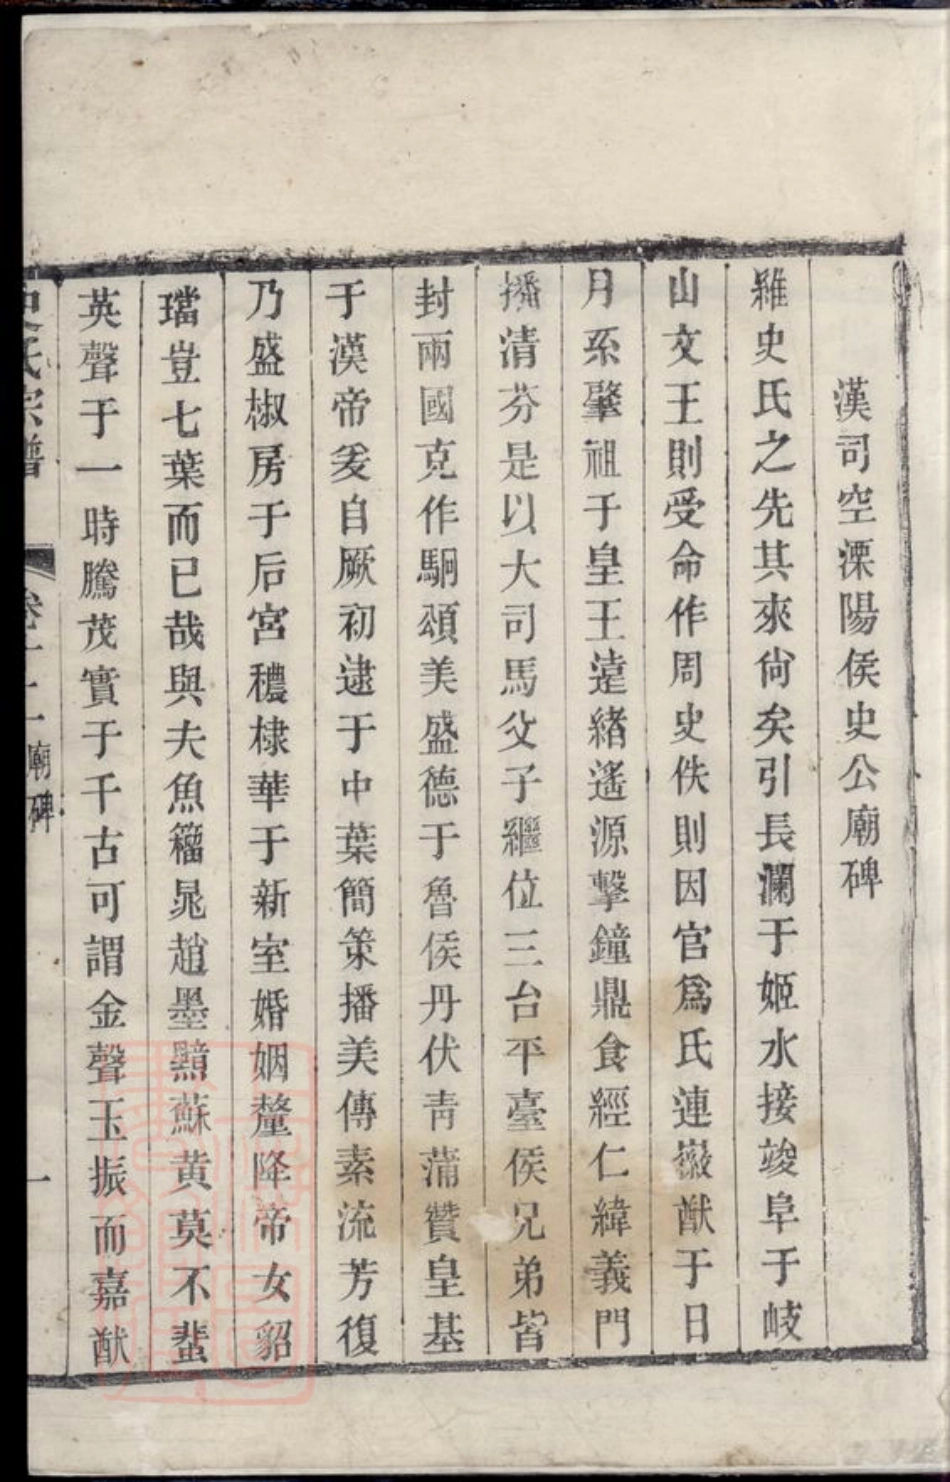 漢司空溧陽侯史公廟碑
雖史氏之先其來尙矣引長瀾于姬水接竣阜于岐
山文王則受命作周史佚則因官爲氏連嶽猷于日
月系肇祖于皇王遠緖遙源擊鐘鼎食經仁緯義門
播清芬是以大司馬父子繼位三台平臺侯兄弟皆
封兩國克作駉頌美盛德于魯侯丹伏靑蒲贊皇基
于漢帝爰自厥初逮于中葉簡策播美傳素流芳復
乃盛椒房于后宮穠棣華于新室婚姻釐降帝女貂
璫豈七葉而已哉與夫魚籀晁趙墨顯蘇黄莫不蜚
英聲于一時騰茂實于千古可謂金聲玉振而嘉猷
史氏宗譜 卷十二 廟碑 一